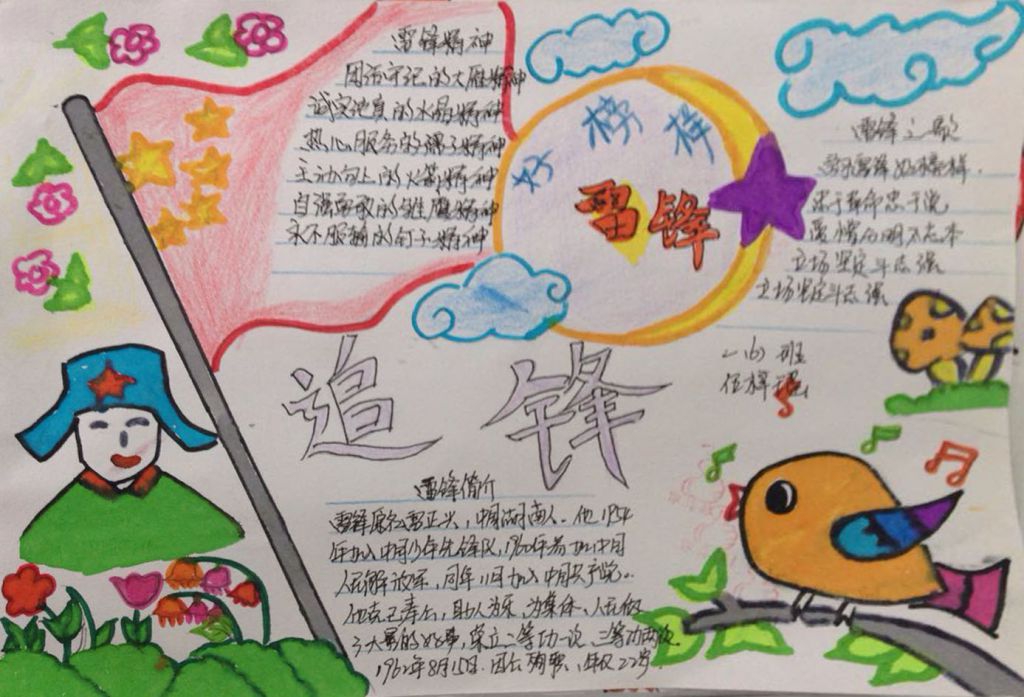 雷锋精神
团结守纪的大雁精神
诚实
的水晶精神
热心服务的
精神
主动向上的火箭精神
自强
的雏鹰精神
永不服输的钉子精神
好榜样
雷锋
雷锋之歌
学习雷锋好榜样
忠于革命忠于党
爱憎分明不忘本
立场坚定斗志强
立场坚定斗志强
追锋
班
雷锋简介
雷锋原名雷正兴，中国湖南人。他1954
年加入中国少年先锋队，1960年
加中国
人民解放军，同年11月加入中国共产党。
他克己奉公，助人为乐，为集体、人民做
了大量的好事，荣立二等功一次，三等功两次
1962年8月15日.因公殉职，年仅22岁